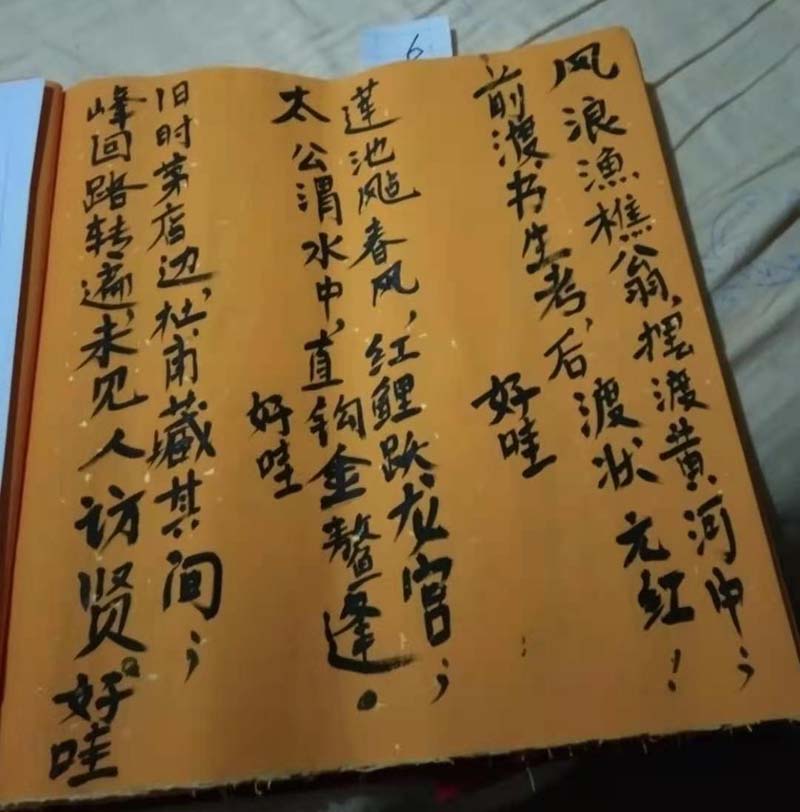 6
风浪漁樵翁,摆渡黄河中;
前渡书生考,后渡状元红!
好哇
莲池飚春风,红鲤跃龙宫;
太公渭水中,直钩金鳌逢。
好哇
旧时茅店边,社南藏其间;
峰回路转遍,未见人访贤。好哇